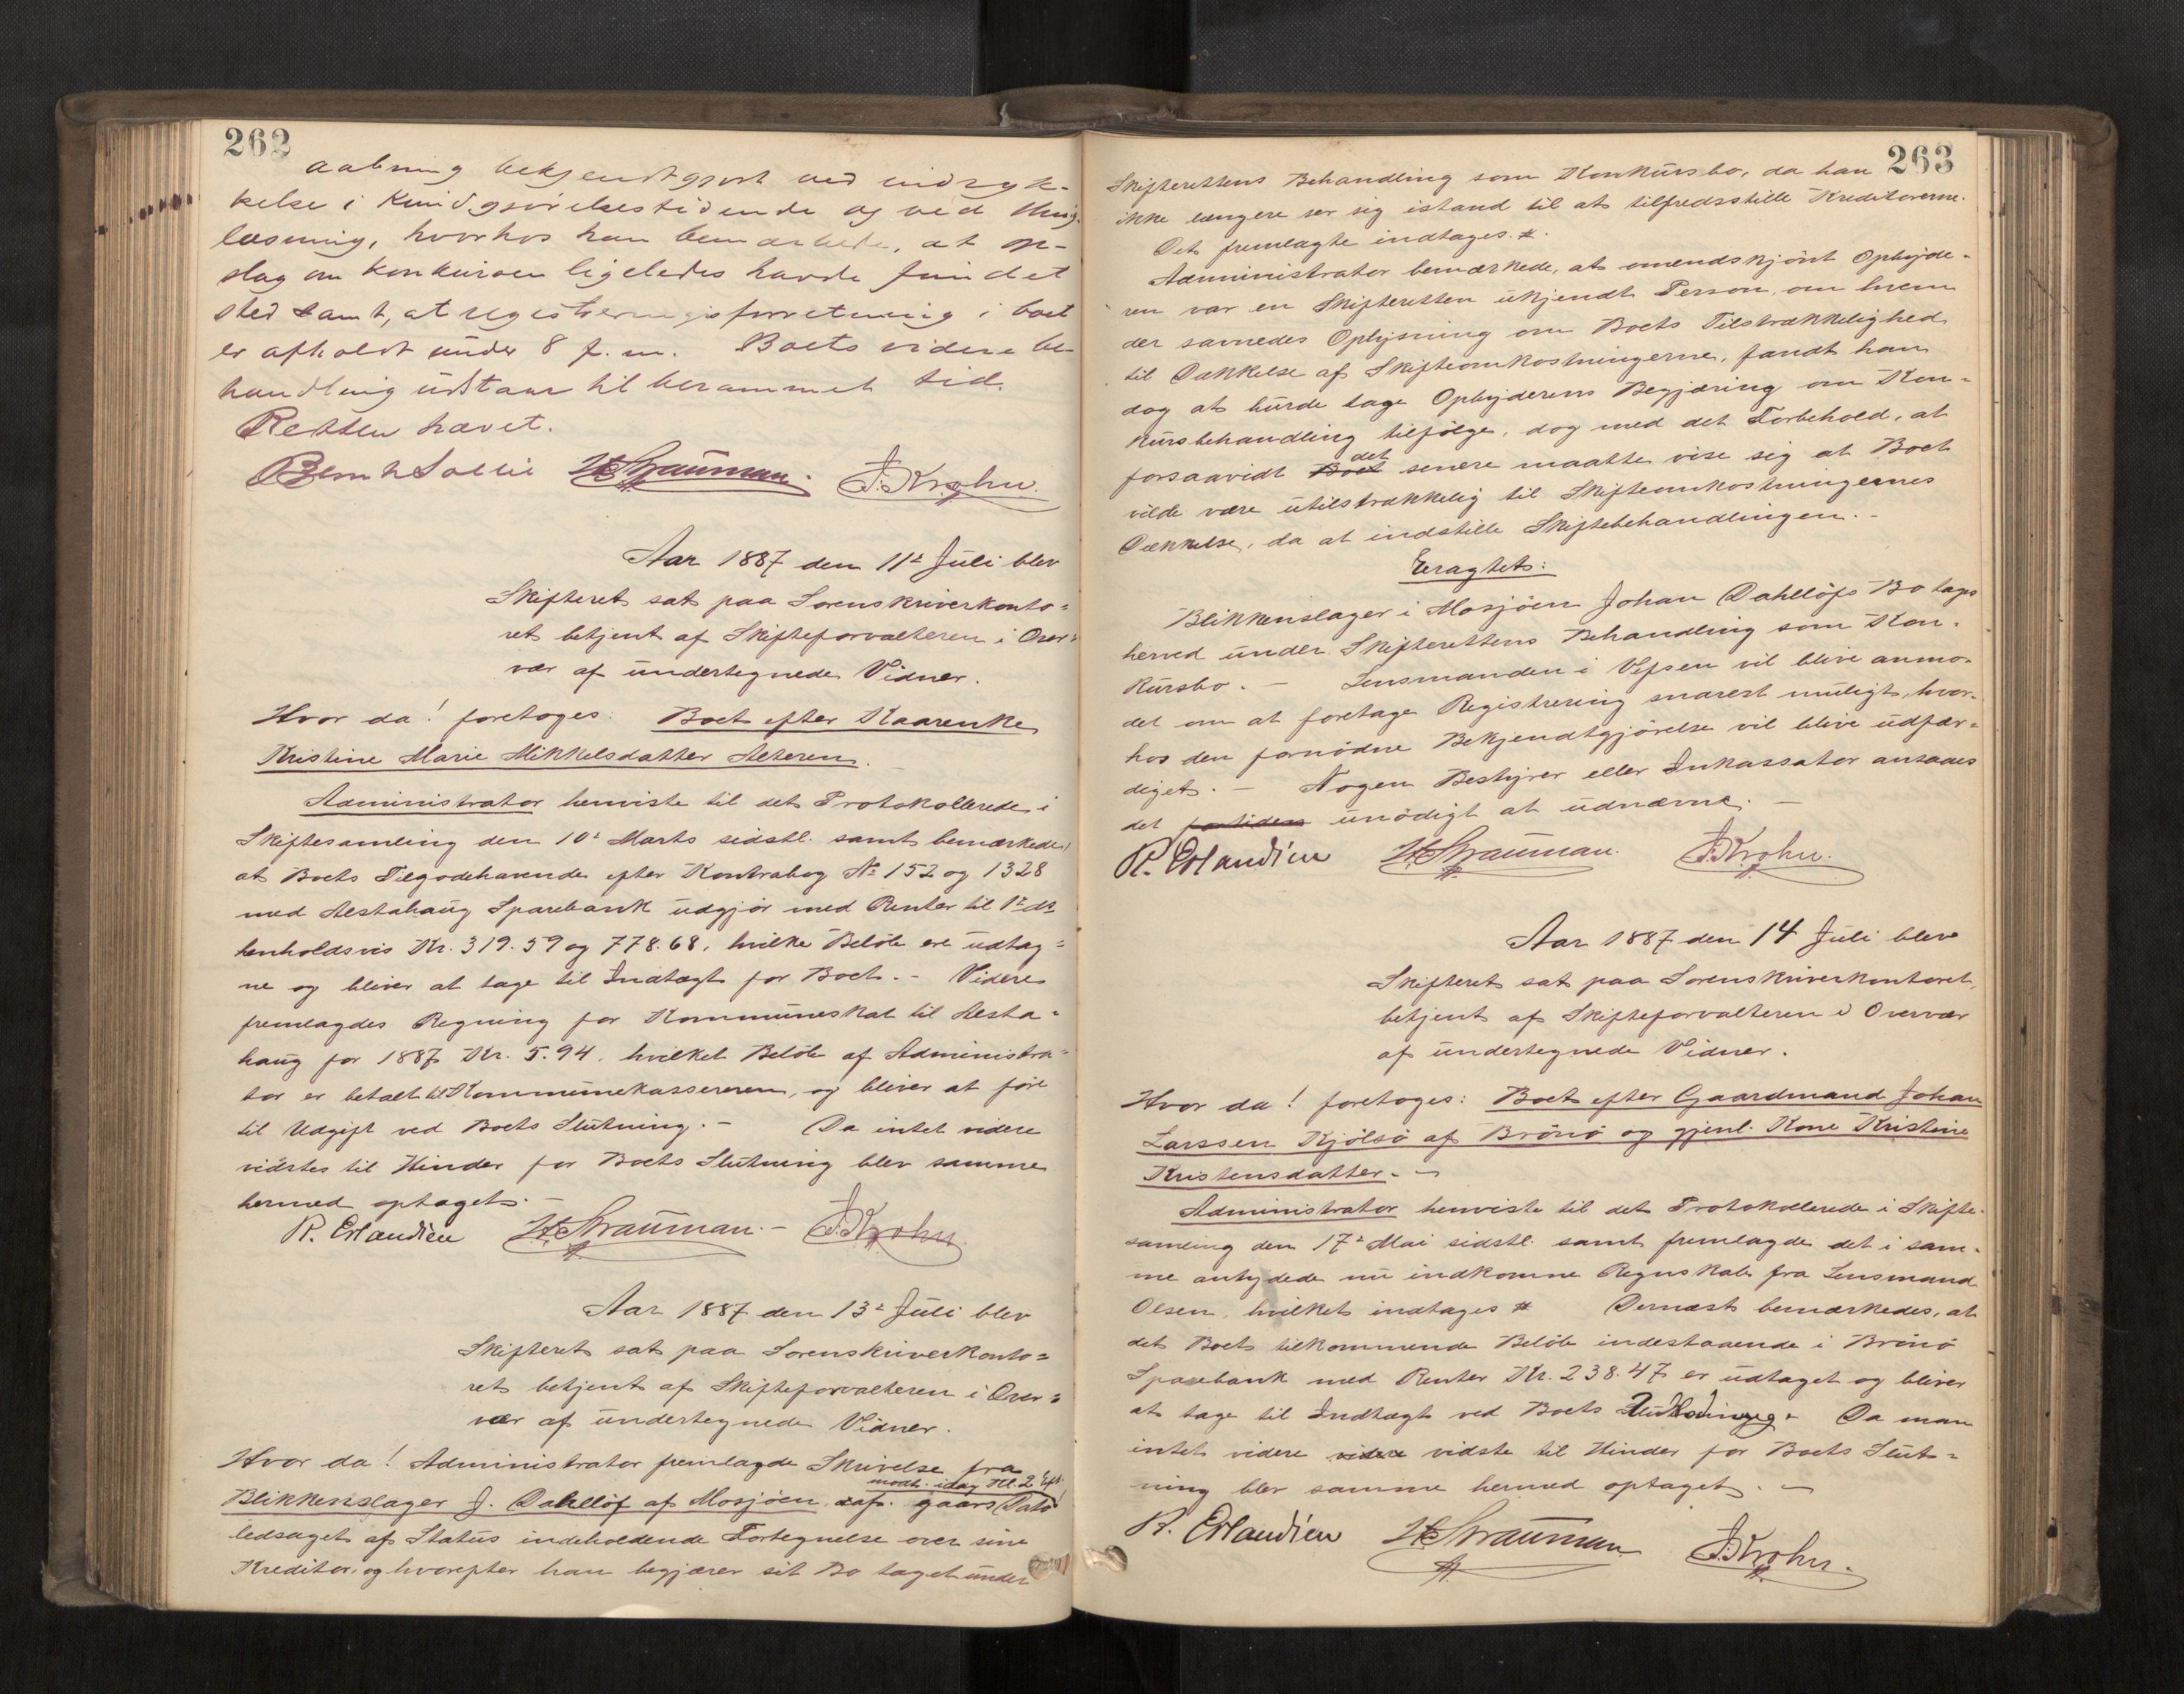 262
aabning bekjendtgjort ved indryk-
kelse i Kundgjørelsestidende og ved thing-
læsning, hvorhos han bemærkede, at op-
slag om konkursen ligeledes havde fundet
sted samt, at registreringsforretning i boet
er afholdt under 8 f. m. Boets videre be
handling udstaar til berammet tid.
Retten hævet.
H Strauman. J. Krohn.
Aar 1887 den 11te Juli blev
Skifteret sat paa Sorenskriverkonto=
ret betjent af Skifteforvalteren i Over=
vær af undertegnede Vidner.
Hvor da! foretoges: Boet efter Kaarenke
Kristine Marie Mikkelsdatter
Administrator henviste til det Protokollerede i
Skiftesamling den 10de Marts sidstl. samt bemærkede,
at Boets Tilgodehavende efter Kontrabog No 152 og 1328
med Alstahaug Sparebank udgjør med Renter til 1te ds
henholdsvis Kr. 319.59 og 778.68, hvilke Beløb ere udtag=
ne og bliver at tage til Indtægt for Boet. - Videre
fremlagdes Regning for Kommuneskat til Alsta=
haug for 1887 Kr. 5.94, hvilket Beløb af Administra=
tor er betalt til Kommunekassereren, og bliver at føre
til Udgift ved Boets Slutning. - Da intet videre
vidstes til Hinder for Boets Slutning blev samme
hermed optaget. -
R. Erlandsen H Strauman. - J. Krohn.
Aar 1887 den 13de Juli blev
Skifteret sat paa Sorenskriverkonto=
ret betjent af Skifteforvalteren i Over=
vær af undertegnede Vidner.
Hvor da! Administrator fremlagde Skrivelse fra
modt. idag Kl. 2 Eft.
Blikkenslager J. Dahllöf af Mosjøen af gaars Dato
ledsaget af Status indeholdende Fortegnelse over sine
Kreditor, og hvorefter han begjærer sit Bo taget under
263
Skifterettens Behandling som Konkursbo, da han
ikke længere ser sig istand til at tilfredsstille Kreditorerne.
Det fremlagte indtages. #.
Administrator bemærkede, at omendskjønt Opbyde=
ren var en Skifteretten ukjendt Person, om hvem
der savnedes Oplysning om Boets Tilstrækkelighed
til Dækkelse af Skifteomkostningerne, fandt han
dog at burde tage Opbyderens Begjæring om Kon=
kursbehandling tilfølge, dog med det Forbehold, at
forsaavidt Boet det senere maatte vise sig at Boet
vilde være utilstrækkelig til Skifteomkostningernes
Dækkelse, da at indstille Skiftebehandlingen. -
Eragtet:
Blikkenslager i Mosjøen Johan Dahllöfs Bo tages
herved under Skifterettens Behandling som Kon-
kursbo. - Lensmanden i Vefsen vil blive anmo-
det om at foretage Registrering snarest muligt, hvor-
hos den fornødne Bekjendtgjørelse vil blive udfær=
diget. - Nogen Bestyrer eller Inkassator ansaaes
det fortiden unødigt at udnævne. -
R. Erlandsen H Strauman. J. Krohn.
Aar 1887 den 14 Juli blev
Skifteret sat paa Sorenskriverkontoret,
betjent af Skifteforvalteren i Overvær
af undertegnede Vidner.
Hvor da! foretoges: Boet efter Gaardmand Johan
Larssen Kjølsø af Brönö og gjenl. Kone Kristine
Kristensdatter. -
Administrator henviste til det Protokollerede i Skifte-
samling den 17de Mai sidstl. samt fremlagde det i sam-
me antydede nu indkomne Regnskab fra Lensmand
Olsen, hvilket indtages # Dernæst bemærkedes, at
det Boet tilkommende Beløb indestaaende i Brönö
Sparebank med Renter Kr. 238.47 er udtaget og bliver
at tage til Indtægt ved Boets Da man
intet videre videre vidste til Hinder for Boets Slut=
ning blev samme hermed optaget. -
R. Erlandsen H Strauman J. Krohn.